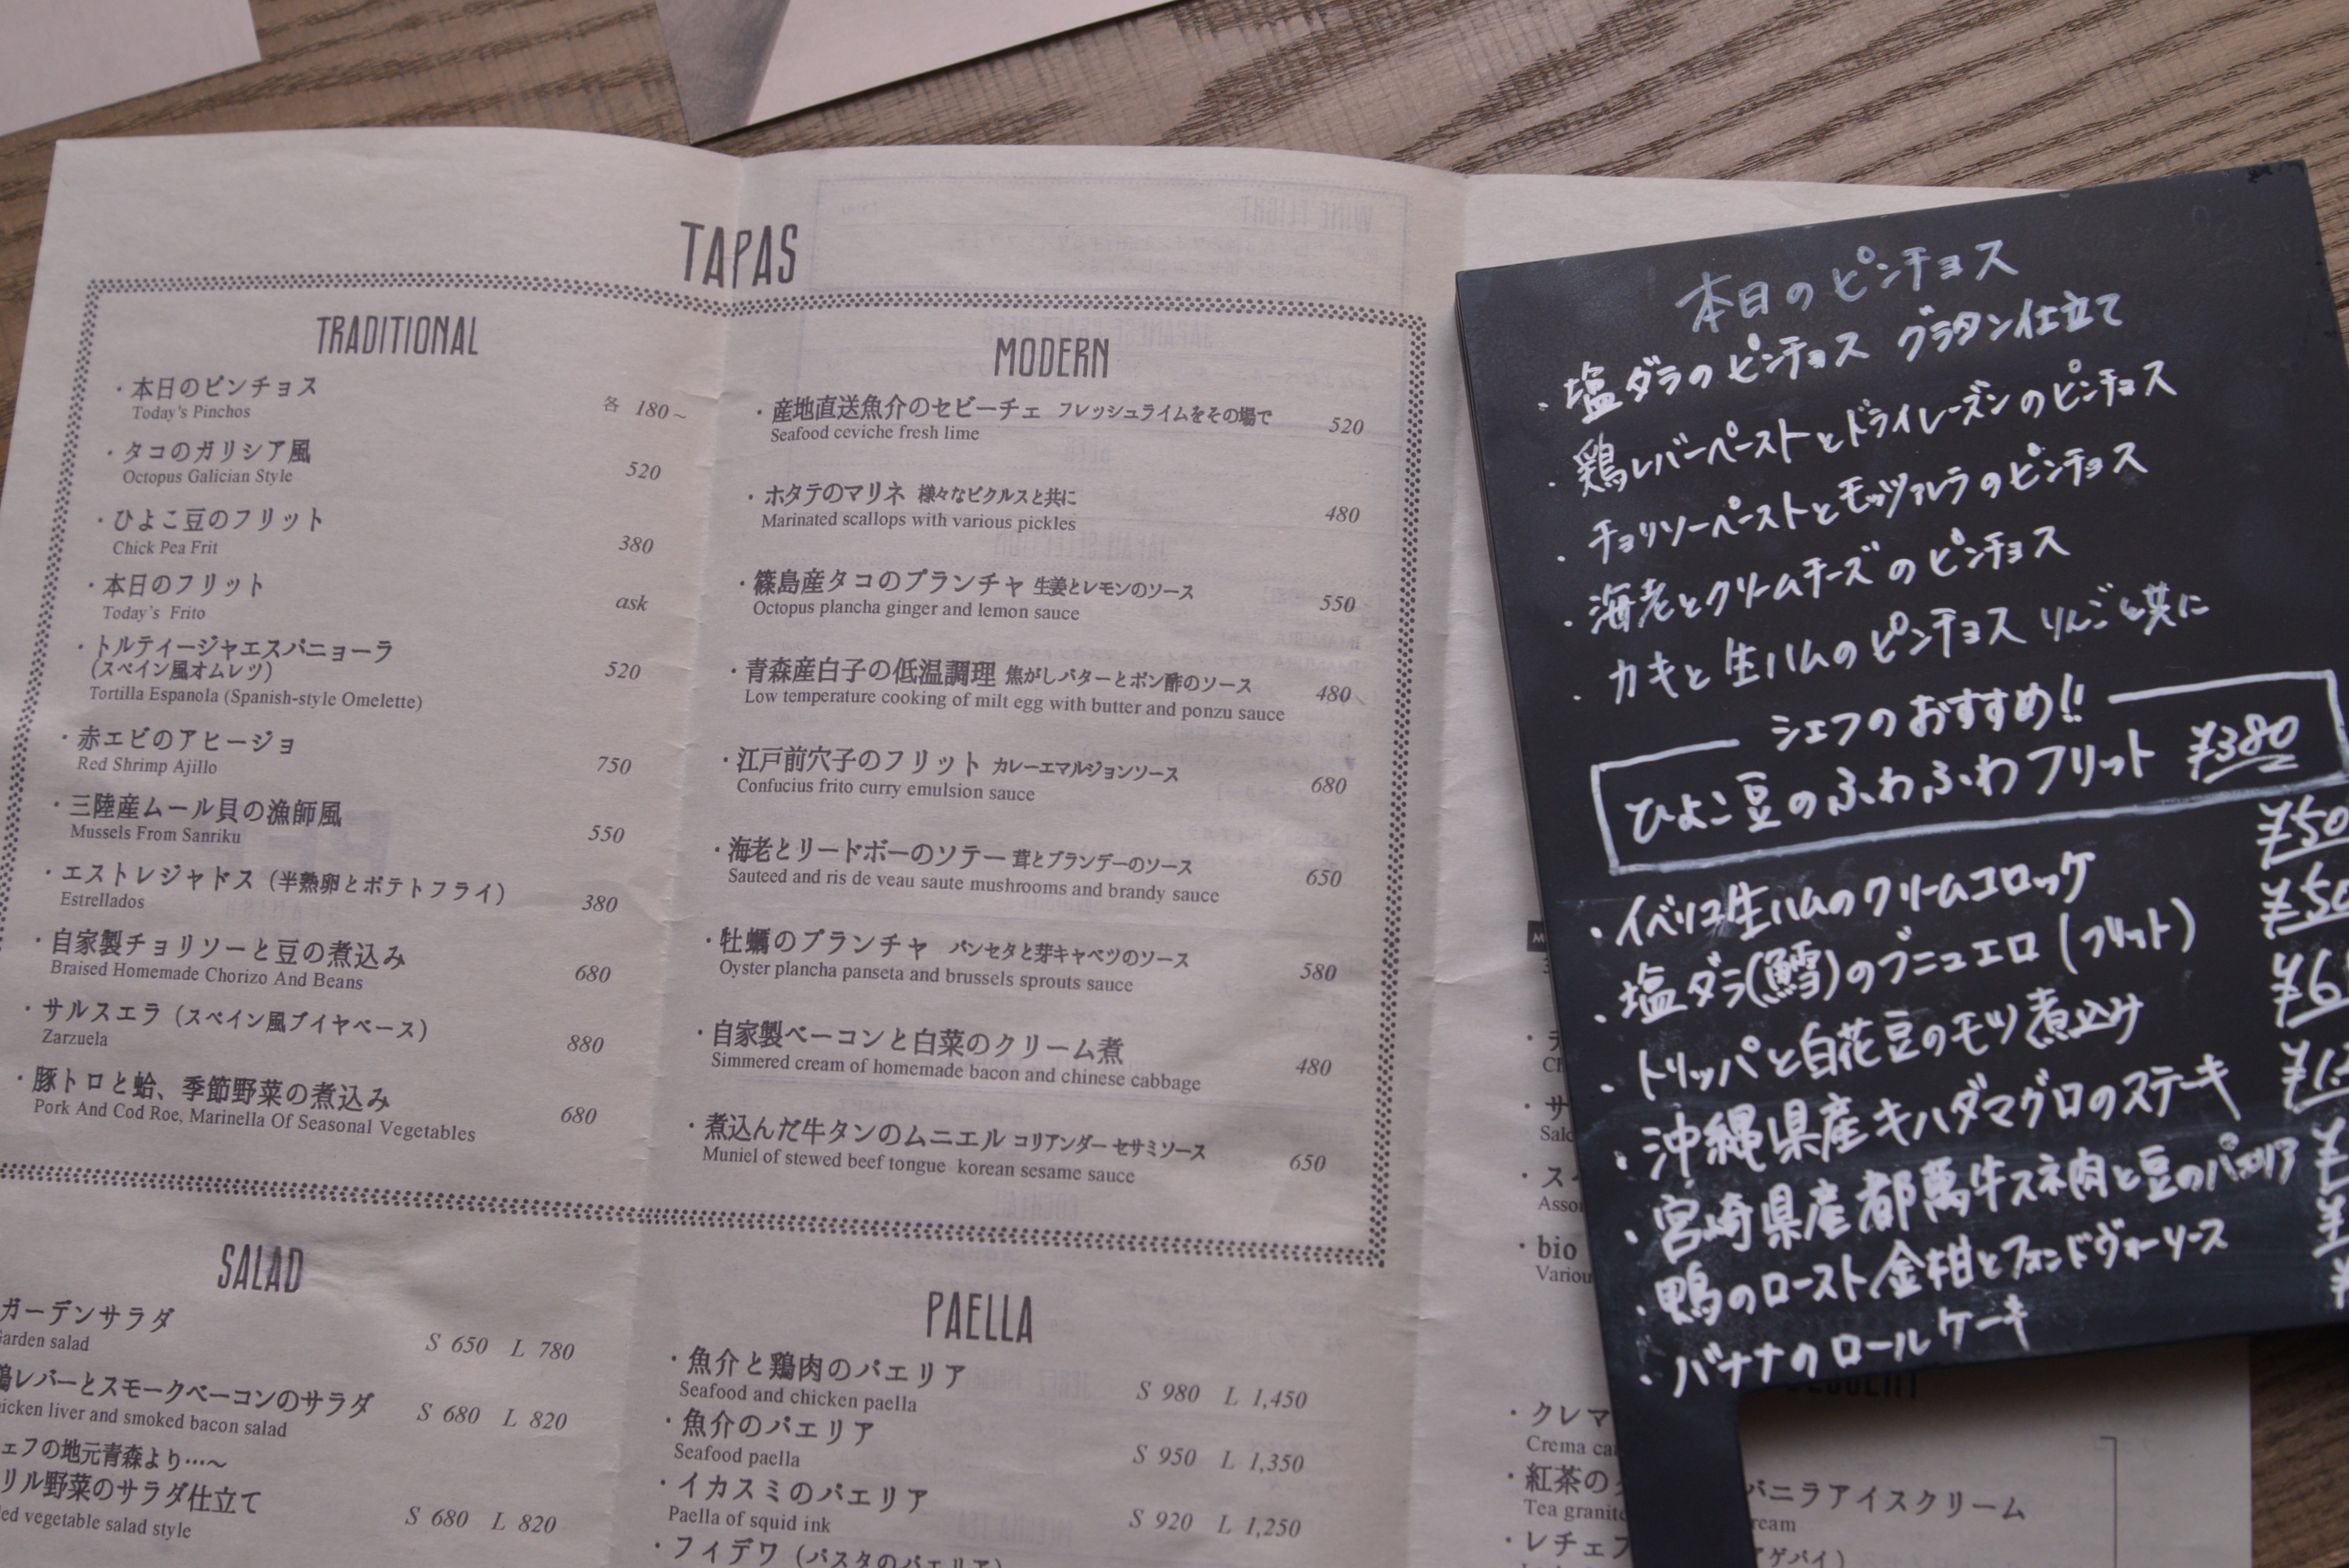 TAPAS
TRADITIONAL
・本日のピンチョス 各 180~
Today's Pinchos
・タコのガリシア風
Octopus Galician Style 520
・ひよこ豆のフリット
Chick Pea Frit 380
・本日のフリット
Today's Frito ask
・トルティージャエスパニョーラ
(スペイン風オムレツ) 520
Tortilla Espanola (Spanish-style Omelette)
・赤エビのアヒージョ
Red Shrimp Ajillo 750
・三陸産ムール貝の漁師風
Mussels From Sanriku 550
・エストレジャドス（半熟卵とポテトフライ）
Estrellados 380
・自家製チョリソーと豆の煮込み
Braised Homemade Chorizo And Beans 680
・サルスエラ（スペイン風ブイヤベース）
Zarzuela 880
・豚トロと蛤、季節野菜の煮込み
Pork And Cod Roe, Marinella Of Seasonal Vegetables 680
MODERN
・産地直送魚介のセビーチェ フレッシュライムをその場で 520
Seafood ceviche fresh lime
・ホタテのマリネ 様々なピクルスと共に
Marinated scallops with various pickles 480
・篠島産タコのプランチャ 生姜とレモンのソース
Octopus plancha ginger and lemon sauce 550
・青森産白子の低温調理 焦がしバターとポン酢のソース 480
Low temperature cooking of milt egg with butter and ponzu sauce
・江戸前穴子のフリット カレーエマルジョンソース
Confucius frito curry emulsion sauce 680
・海老とリードボーのソテー 茸とブランデーのソース
Sauteed and ris de veau saute mushrooms and brandy sauce 650
・牡蠣のプランチャ パンセタと芽キャベツのソース
Oyster plancha panseta and brussels sprouts sauce 580
・自家製ベーコンと白菜のクリーム煮
Simmered cream of homemade bacon and chinese cabbage 480
・煮込んだ牛タンのムニエル コリアンダー セサミソース
Muniel of stewed beef tongue korean sesame sauce 650
SALAD
ガーデンサラダ
Garden salad S 650 L 780
鶏レバーとスモークベーコンのサラダ
chicken liver and smoked bacon salad S 680 L 820
ェフの地元青森より…～
リル野菜のサラダ仕立て
ed vegetable salad style S 680 L 820
PAELLA
・魚介と鶏肉のパエリア
Seafood and chicken paella S 980 L 1,450
・魚介のパエリア
Seafood paella S 950 L 1,350
・イカスミのパエリア
Paella of squid ink S 920 L 1,250
・フィデワ（パスタのパエリア）
本日のピンチョス
・塩ダラのピンチョス グラタン仕立て
・鶏レバーペーストとドライレーズンのピンチョス
・チョリソーペーストとモッツァレラのピンチョス
・海老とクリームチーズのピンチョス
・カキと生ハムのピンチョス りんごと共に
シェフのおすすめ!!
ひよこ豆のふわふわフリット ¥380
・イベリコ生ハムのクリームコロッケ ¥50
・塩ダラ(鱈)のブニュエロ(フリット) ¥50
・トリッパと白花豆のモツ煮込み ¥6
・沖縄県産キハダマグロのステーキ ¥1
・宮崎県産都萬牛スネ肉と豆のパエリア ¥
・鴨のロースト金柑とフォンドヴォーソース ¥
・バナナのロールケーキ
・サ
・ス
Asso
・bio
Variou
・クレマ
Crema ca
・紅茶の バニラアイスクリーム
Tea granite ream
・レチェフ アゲパイ）